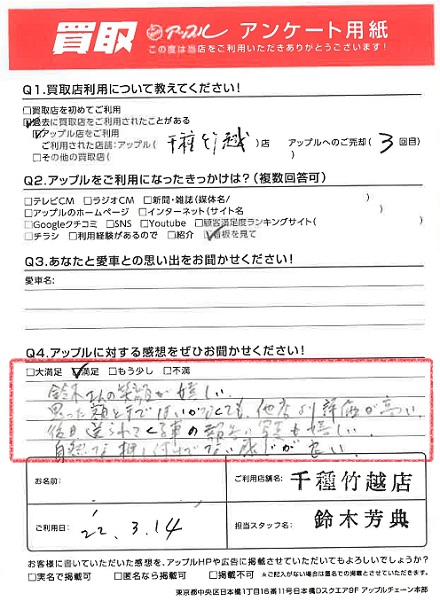 買取 アップル アンケート用紙
この度は当店をご利用いただきありがとうございます!
Q1.買取店利用について教えてください!
□買取店を初めてご利用
☑過去に買取店をご利用されたことがある
☑アップル店をご利用
ご利用された店舗:アップル( 千種竹越 )店 アップルへのご売却( 3 回目)
□その他の買取店( )
Q2.アップルをご利用になったきっかけは?(複数回答可)
□テレビCM □ラジオCM □新聞・雑誌(媒体名/ )
□アップルのホームページ □インターネット(サイト名 )
□Googleクチコミ □SNS □Youtube □顧客満足度ランキングサイト( )
□チラシ □利用経験があるので □紹介 ☑看板を見て
Q3.あなたと愛車との思い出をお聞かせください!
愛車名:
Q4.アップルに対する感想をぜひお聞かせください!
□大満足 ☑満足 □もう少し □不満
鈴木さんの笑顔が嬉しい。
思った額とまではいかなくても、他店より評価が高い。
後日送られてくる車の報告の写真も嬉しい。
自然で押し付けがない感じが良い。
お名前:
ご利用店舗名: 千種竹越店
ご利用日: 22.3.14
担当スタッフ名: 鈴木芳典
お客様に書いていただいた感想を、アップルHPや広告に掲載させていただいてもよろしいでしょうか?
□実名で掲載可 □匿名なら掲載可 □掲載不可 ※ご記入がない場合は匿名での掲載とさせていただきます。
東京都中央区日本橋1丁目16番11号日本橋Dスクエア9F アップルチェーン本部